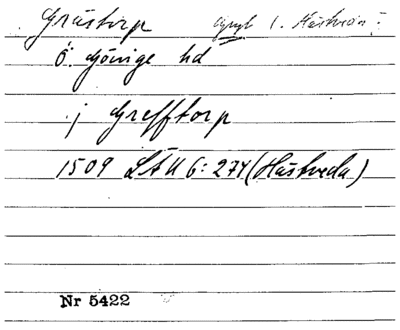 Grästorp Gryt s. Hästveda
Ö. Göinge hd
j Grefftorp
1509 LÄU 6: 274 (Hästveda)
Nr 5422